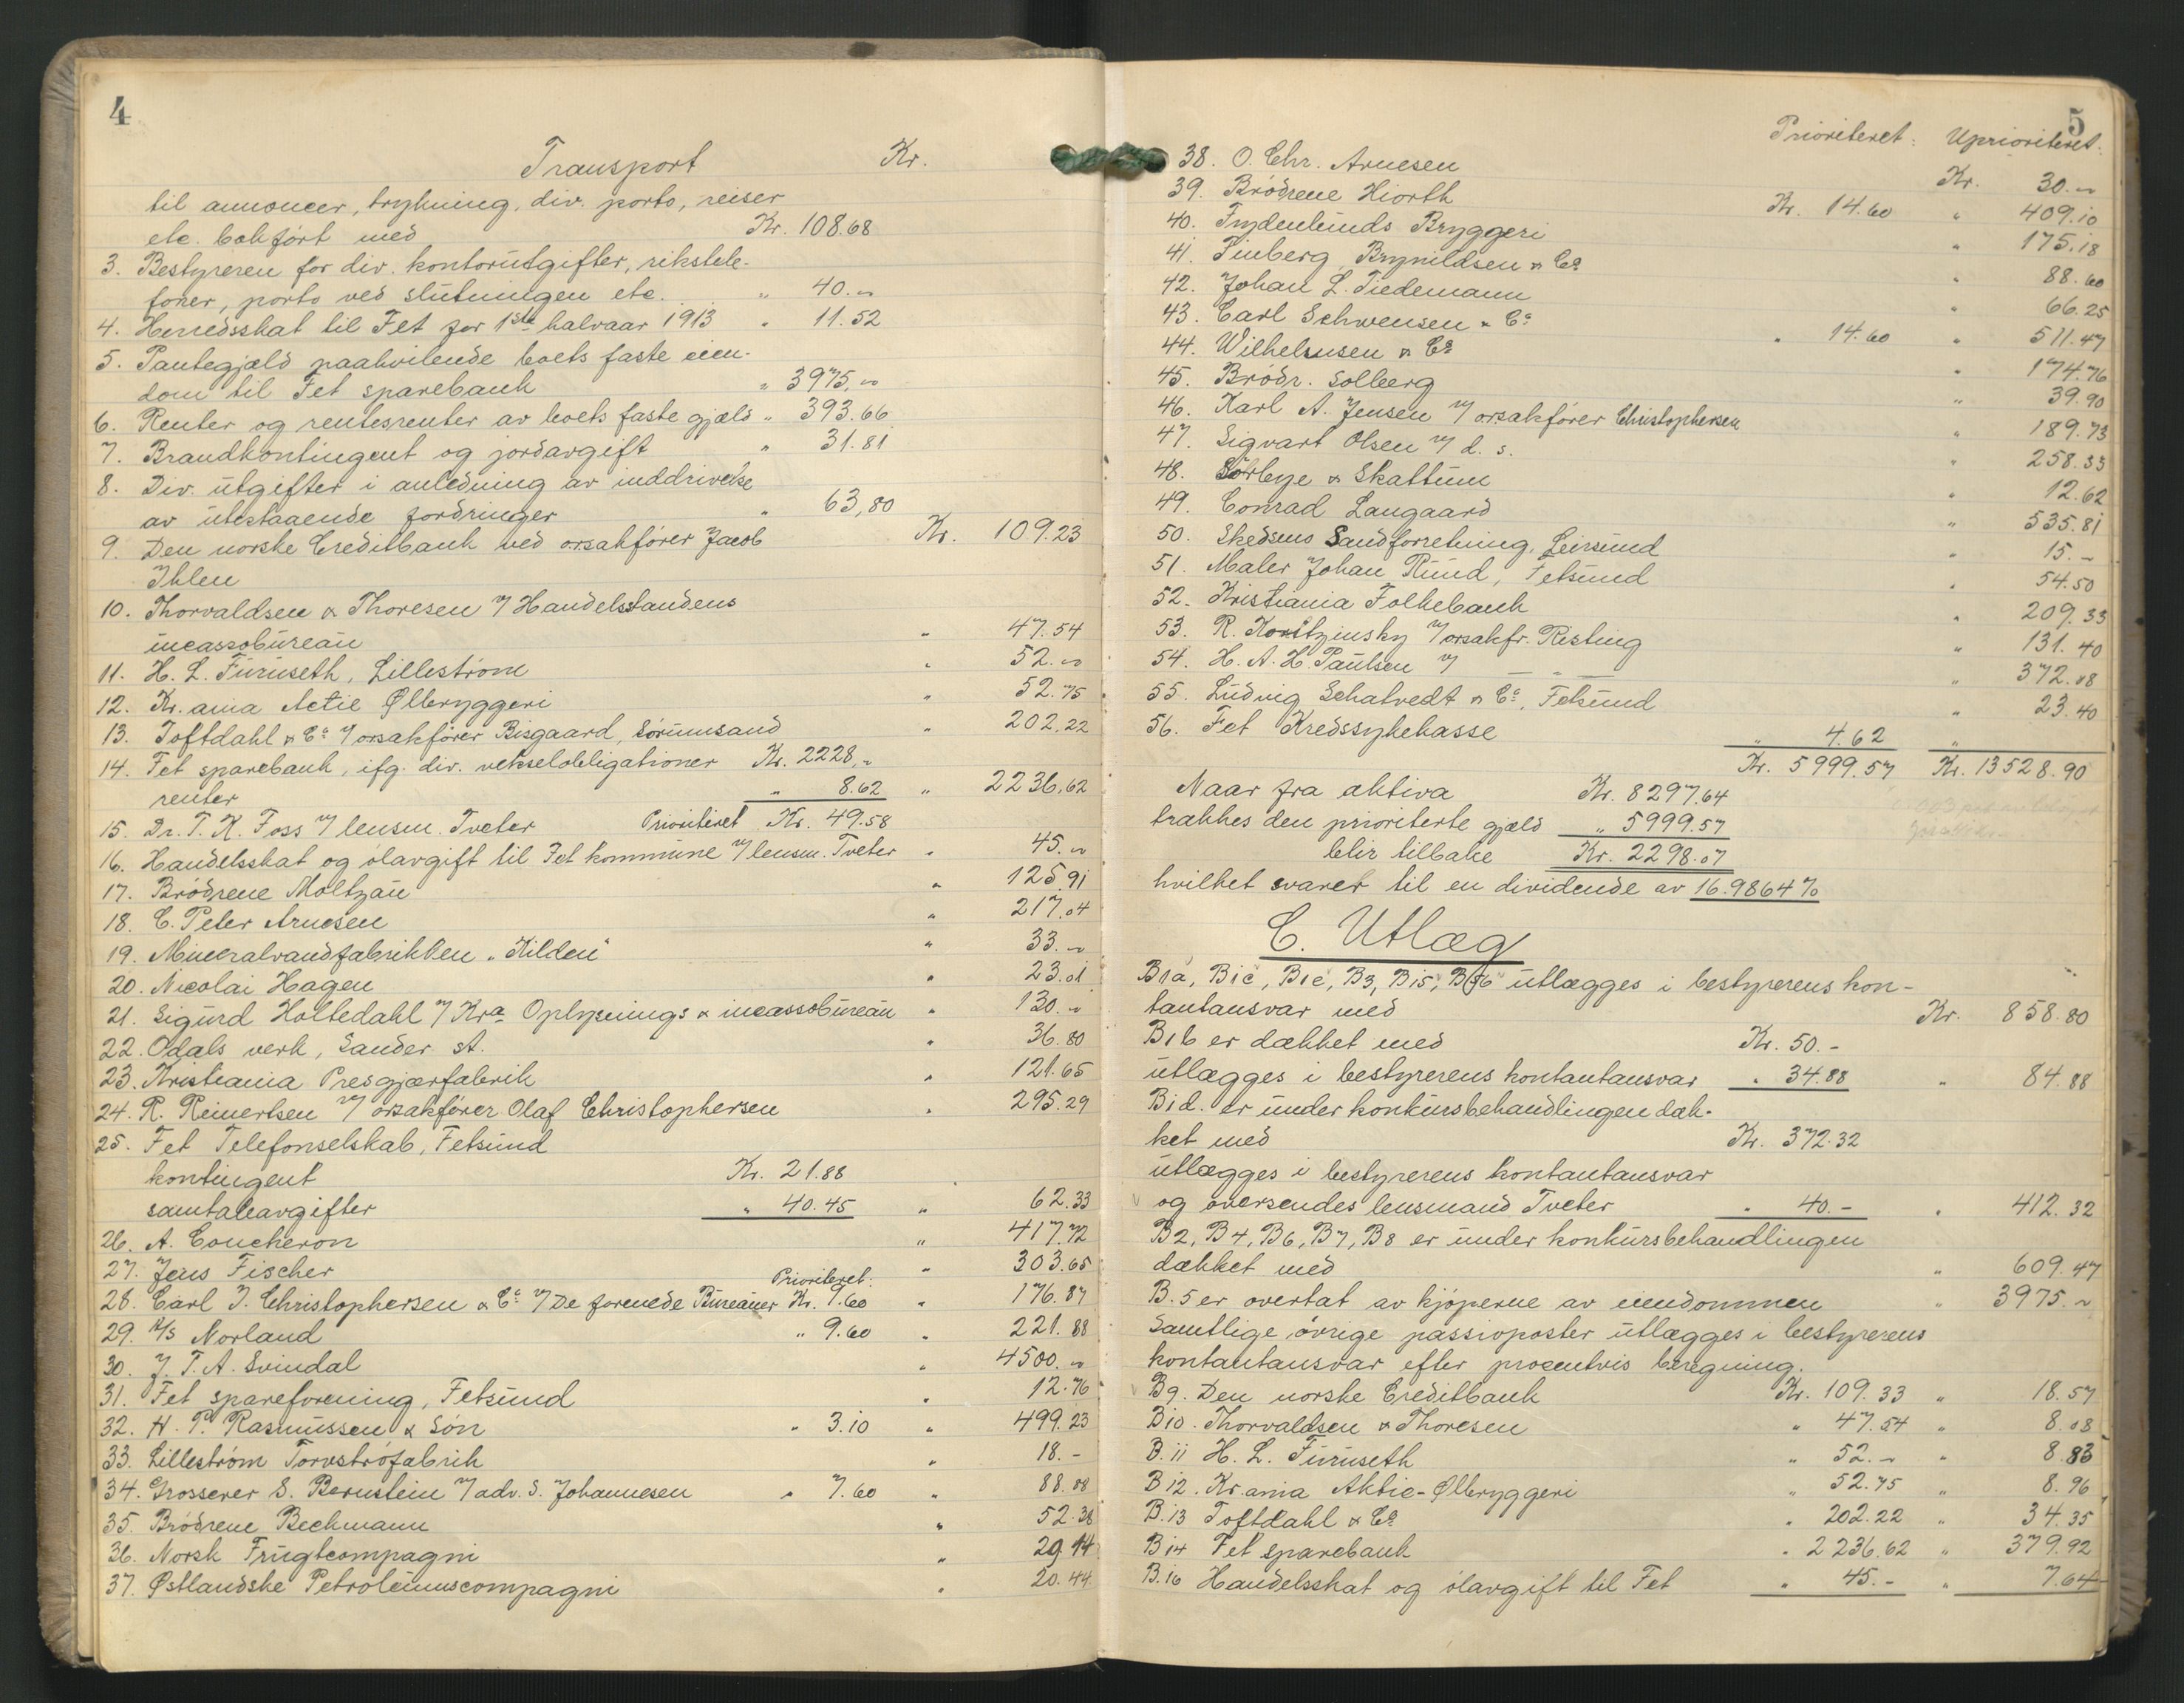 4
Transport Kr.
til annoncer, trykning, div. porto, reiser
etc. bokført med Kr. 108.68
3. Bestyreren for div. kontorutgifter, rikstele-
foner, porto ved slutningen etc. " 40.-
4. Herredsskat til Fet for 1ste halvaar 1913 " 11.52
5. Pantegjæld paahvilende boets faste eien-
dom til Fet sparebank " 3975.-
6. Renter og rentesrenter av boets faste gjæld " 393.66
7. Brandkontingent og jordavgift " 31.81
8. Div. utgifter i anledning av inddrivelse
av utestaaende fordringer " 63,80
9. Den norske Creditbank ved o.r.sakfører Jacob Kr. 109.23
Ihlen
10. Thorvaldsen & Thoresen v/ Handelsstandens
incassobureau " 47.54
11. H. L. Furuseth, Lillestrøm " 52.-
12. Kr.ania Actie Ølbryggeri " 52.75
13. Toftdahl & Co v/ o.r.sakfører Bisgaard, Sørumsand " 202.22
14. Fet sparebank, ifg. div. vekselobligationer Kr. 2228,-
renter " 8.62 " 2236.62
15. Dr. T. K. Foss v/ lensm. Tveter Prioriteret Kr. 49.58
16. Handelsskat og ølavgift til Fet kommune v/ lensm. Tveter " 45.-
17. Brødrene Moltzau " 125.91
18. C. Peter Arnesen " 217.04
19. Mineralvandfabrikken "Kilden" " 33.-
20. Nicolai Hagen " 23.01
21. Sigurd Holtedahl v/ Kra Oplysnings & incassobureau " 130.-
22. Odals verk, Sander st. " 36.80
23. Kristiania Presgjærfabrik " 121.65
24. R. Reinertsen v/ o.r.sakfører Olaf Christophersen " 295.29
25. Fet Telefonselskab, Fetsund
kontingent Kr. 21.88
samtaleavgifter " 40.45 " 62.33
26. A. Coucheron " 417.72
27. Jens Fischer " 303.65
Prioriteret:
28. Carl J. Christophersen & Co v/ De forenede Bureauer Kr. 9.60 " 176.87
29. A/S Norland " 9.60 " 221.88
30. J. T. A. Svindal " 4500.-
31. Fet spareforening, Fetsund " 12.76
32. H. P. Rasmussen & Søn " 3.10 " 499.23
33. Lillestrøm Torvstrøfabrik " 18.-
34. Grosserer S. Bernstein v/ adv. S. Johannesen " 7.60 " 88.08
35. Brødrene Bechmann " 52.38
36. Norsk Frugtcompagni " 29.14
37. Østlandske Petroleumscompagni " 20.44
5
Prioriteret: Uprioriteret:
38. O. Chr. Arnesen Kr. 30.-
39. Brødrene Hiorth Kr. 14.60 " 409.10
40. Frydenlunds Bryggeri " 175.18
41. Finberg, Brynildsen & Co " 88.60
42. Johan L. Tiedemann " 66.25
43. Carl Schwensen & Co " 14.60 " 511.47
44. Wilhelmsen & Co " 174.76
45. Brødr. Solberg " 39.90
46. Karl A. Jensen v/ o.r.sakfører Christophersen " 189.73
47. Sigvart Olsen v/ d. s. " 258.33
48. Sørbye & Skattum " 12.62
49. Conrad Langaard " 535.81
50. Skedsmo Sandforretning, Leirsund " 15.-
51. Maler Johan Rund, Fetsund " 54.50
52. Kristiania Folkebank " 209.33
53. R. Koritzinsky v/ o.r.sakfr. Risting " 131.40
54. H. A. H. Paulsen v/ — " — " 372.08
55. Ludvig Schatvedt & Co, Fetsund " 23.40
56. Fet Kredssykekasse " 4.62 "
Kr. 5999.57 Kr. 13528.90
Naar fra aktiva Kr. 8297.64
trækkes den prioriterte gjæld " 5999.57
blir tilbake Kr. 2298.07
hvilket svarer til en dividende av 16.9864%
C. Utlæg
B1a, B1c, B1e, B3, B15, B56 utlægges i bestyrerens kon-
tantansvar med Kr. 858.80
B1b er dækket med Kr. 50.-
utlægges i bestyrerens kontantansvar " 34.88 " 84.88
B1d. er under konkursbehandlingen dæk-
ket med Kr. 372.32
utlægges i bestyrerens kontantansvar
og oversendes lensmand Tveter " 40.- " 412.32
B2, B4, B6, B7, B8 er under konkursbehandlingen
dækket med " 609.47
B.5 er overtat av kjøperne av eiendommen " 3975.-
Samtlige øvrige passivposter utlægges i bestyrerens
kontantansvar efter procentvis beregning.
B9. Den norske Creditbank Kr. 109.33 " 18.57
B10. Thorvaldsen & Thoresen " 47.54 " 8.08
B.11 H. L. Furuseth " 52.- " 8.83
B12. Kr.ania Aktie-Ølbryggeri " 52.75 " 8.96
B.13 Toftdahl & Co " 202.22 " 34.35
B14 Fet sparebank " 2236.62 " 379.92
B.16 Handelsskat og ølavgift til Fet " 45.- " 7.64